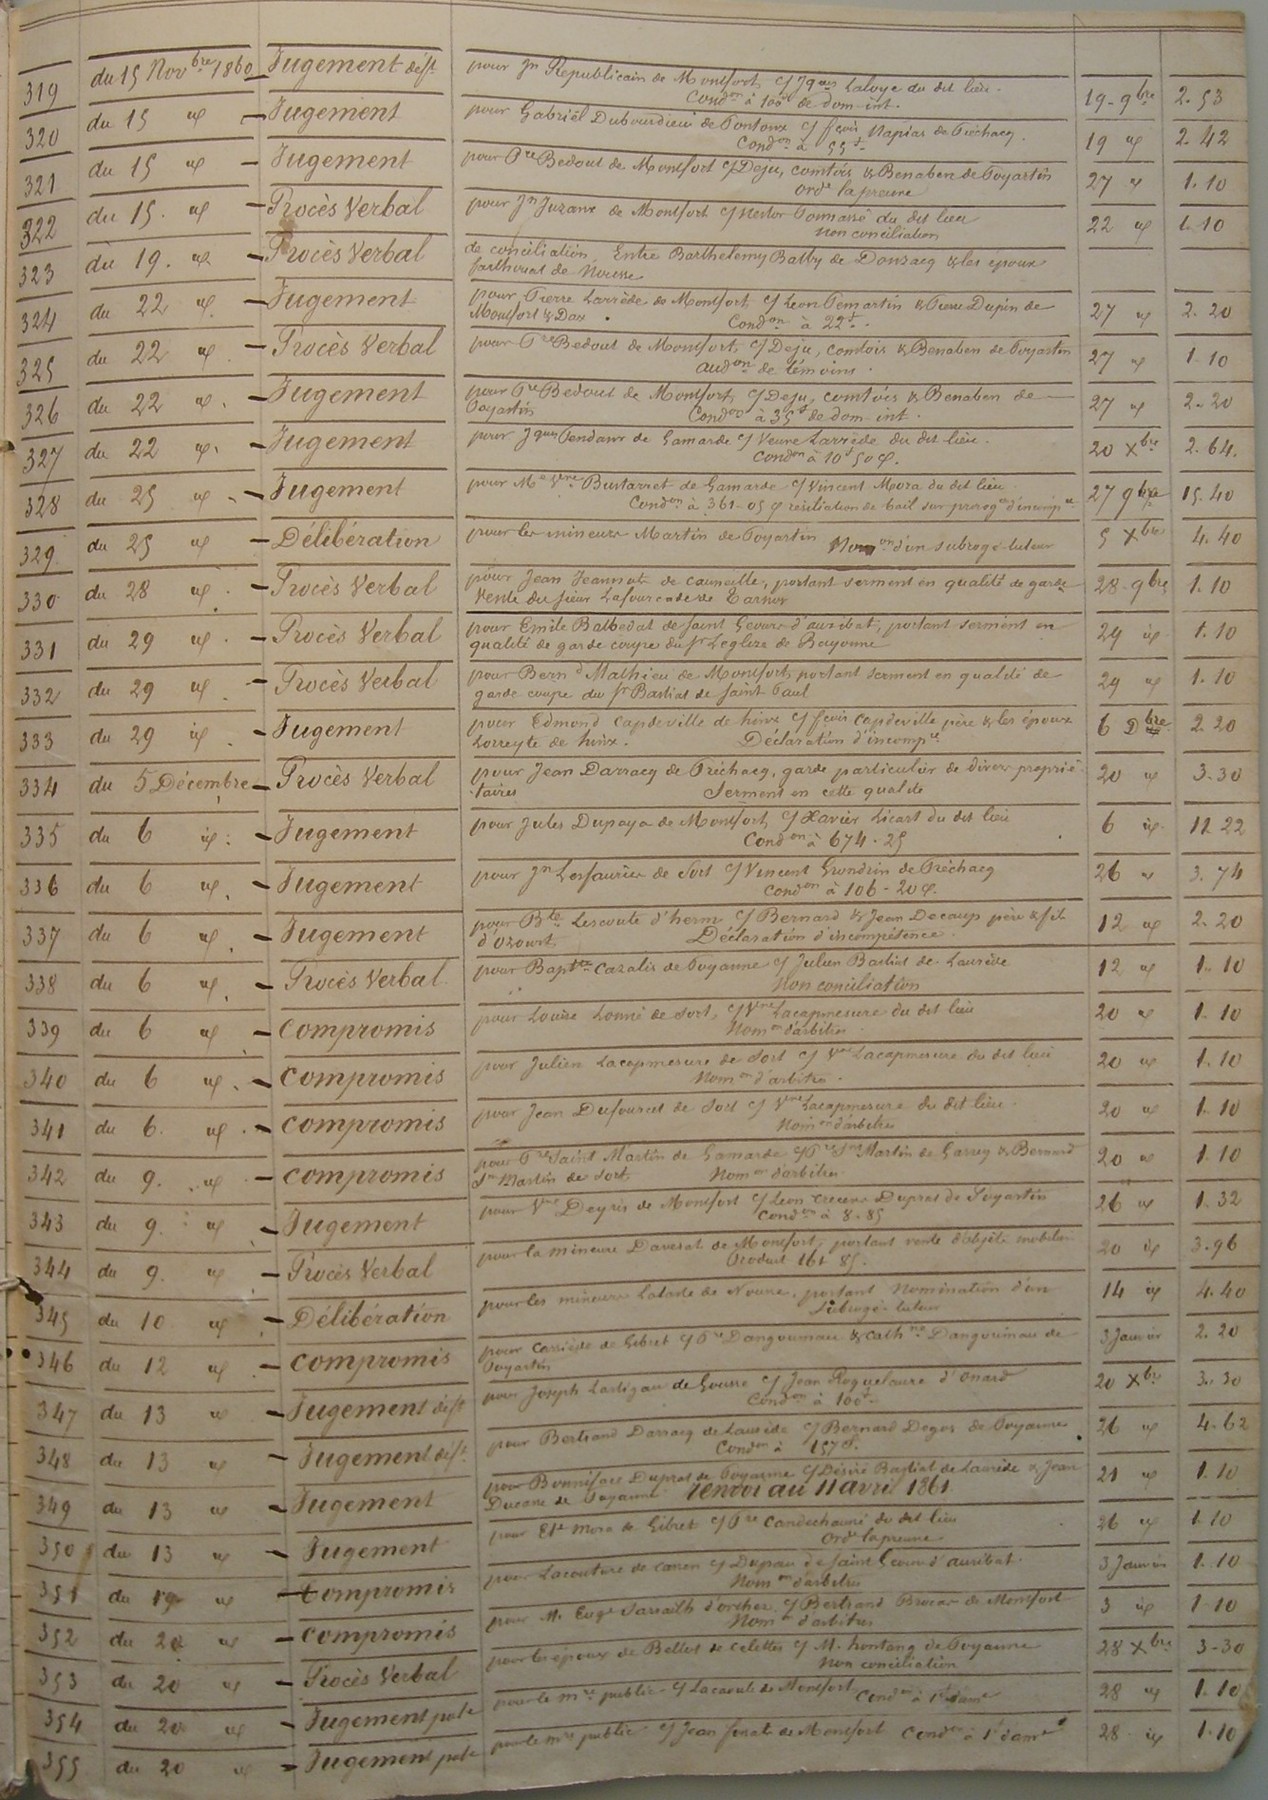 319 du 15 Novbre 1860 Jugement déft pour Jn Republicain de Montfort c/ Jques Laloye du dit lieu. 19 - 9bre 2. 53
Condon à 100f de dom-int.
320 du 15 id Jugement pour Gabriël Dubourdieu de Pontonx c/ fçois Napias de Préchacq. 19 id 2. 42
Condon à 55f
321 du 15 id Jugement pour Pre Bedout de Montfort c/ Deju, comtois & Benaben de Poyartin 27 id 1. 10
Orde la preuve
322 du 15. id Procès Verbal pour Jn Juzanx de Montfort c/ Nestor Tomassé du dit lieu 22 id 1. 10
Non conciliation
323 du 19. id Procès Verbal de conciliation, Entre Barthelemy Batby de Donzacq & les epoux
farthouat de Nousse
324 du 22 id Jugement pour Pierre Larrède de Montfort c/ Leon Temartin & Pierre Dupin de 27 id 2. 20
Montfort & Dax. Condon à 22f.
325 du 22 id Procès Verbal pour Pre Bedout de Montfort, c/ Deju, comtois & Benaben de Poyartin 27 id 1. 10
audon de témoins.
326 du 22 id. Jugement pour Pre Bedout de Montfort, c/ Deju, comtois & Benaben de 27 id 2. 20
Poyartin Condon à 35f de dom-int.
327 du 22 id. Jugement pour Jques Tendanx de Gamarde c/ Veuve Larrède du dit lieu. 20 Xbre 2. 64.
Condon à 10f 50 c.
328 du 25 id Jugement pour Me Vve Bustarret de Gamarde c/ Vincent Mora du dit lieu 27 9bre 15. 40
Condon à 361-05 c résiliation de bail sur prorogon d'incompce
329 du 25 id Délibération pour les mineurs Martin de Poyartin Nomon d'un subrogé-tuteur 5 Xbre 4. 40
330 du 28 id. Procès Verbal pour Jean Jeannots de cauneille, portant serment en qualité de garde 28 - 9bre 1. 10
Vente du sieur Lafourcade de Tarnos
331 du 29 id. Procès Verbal pour Emile Balbedat de Saint Geours d'auribat, portant serment en 29 id 1. 10
qualité de garde coupe du sr Leglize de Bayonne
332 du 29 id. Procès Verbal pour Bernd Mathieu de Montfort, portant serment en qualité de 29 id 1. 10
garde coupe du sr Bastiat de Saint Paul
333 du 29 id. Jugement pour Edmond Capdeville de hinx c/ fçois Capdeville père & les époux 6 Dbre 2. 20
Lorreyte de hinx. Déclaration d'incompce
334 du 5 Décembre Procès Verbal pour Jean Darracq de Préchacq, garde particulier de divers proprié- 20 id 3. 30
taires Serment en cette qualité
335 du 6 id. Jugement pour Jules Dupaya de Montfort, c/ Xavier Licart du dit lieu 6 id. 11. 22
Condon à 674. 25
336 du 6 id. Jugement pour Jn Lesfauries de Sort c/ Vincent Grondin de Préchacq 26 id 3. 74
Condon à 106 - 20 c.
337 du 6 id. Jugement pour Bte Lescoute d'herm c/ Bernard & Jean Decaup père & fils 12 id 2. 20
d'Ozourt, Déclaration d'incompétence.
338 du 6 id. Procès Verbal pour Baptte Cazalis de Poyanne c/ Julien Bastiat de Laurède 12 id 1. 10
Non conciliation
339 du 6 id compromis pour Louise Lonné de Sort, c/ Vve Lacapmesure du dit lieu 20 id 1. 10
Nomon d'arbitres
340 du 6 id. compromis pour Julien Lacapmesure de Sort c/ Vve Lacapmesure du dit lieu 20 id 1. 10
Nomon d'arbitres.
341 du 6. id. compromis pour Jean Dufourcet de Sort c/ Vve Lacapmesure du dit lieu. 20 id 1. 10
Nomon d'arbitres
342 du 9. id compromis pour Pre Saint Martin de Gamarde c/ Pre St Martin de Garrey & Bernard 20 id 1. 10
St Martin de Sort Nomon d'arbitres
343 du 9. id Jugement pour Vve Deyris de Montfort c/ Leon Duprat de Poyartin 26 id 1. 32
Condon à 8-85
344 du 9. id Procès Verbal pour la mineure Daverat de Montfort, portant vente d'objets mobiliers 20 id 3. 96
Produit 161 85.
345 du 10 id Délibération pour les mineurs Labaste de Nousse, portant Nomination d'un 14 id 4. 40
Subrogé-tuteur
346 du 12 id compromis pour Carrière de Gibret c/ Pre Dangoumau & Cathne Dangoumau de 3 Janvier 2. 20
Poyartin
347 du 13 id Jugement déft pour Joseph Lartigau de Gousse c/ Jean Roquelaure d'Onard 20 Xbre 3. 30
Condon à 100f.
348 du 13 id Jugement déft pour Bertrand Darracq de Laurède c/ Bernard Degos de Poyanne 26 id 4. 62
Condon à 157f.
349 du 13 id Jugement pour Bonniface Duprat de Poyanne c/ Désiré Bastiat de Laurède & Jean 21 id 1. 10
Ducasse de Poyanne renvoi au 11 avril 1861
350 du 13 id Jugement pour Ete Mora de Gibret c/ Pre Candechaune du dit lieu 26 id 1. 10
Orde la preuve
351 du 19 id compromis pour Lacouture de Cassen c/ Dupau de Saint Geours d'auribat. 3 Janvier 1. 10
Nomon d'arbitres
352 du 20 id compromis pour M. Eugne Sarraith d'orthez c/ Bertrand Brocas de Montfort 3 id 1. 10
Nomon d'arbitres
353 du 20 id Procès Verbal pour les époux de Bellet de Candresse c/ M. hontang de Poyanne 28 Xbre 3. 30
Non conciliation
354 du 20 id Jugement pole pour le mre public c/ Lacoste de Montfort Condon à 1f d'amde 28 id 1. 10
355 du 20 id Jugement pole pour le mre public c/ Jean fonat de Montfort Condon à 1f d'amde 28 id 1. 10